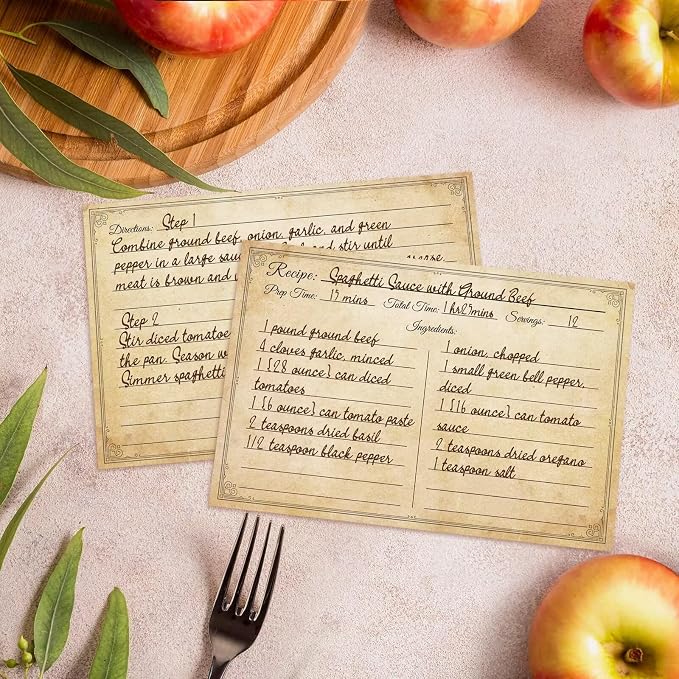 Directions: Step 1
Combine ground beef, onion, garlic, and green
pepper in a large sau and stir until
meat is brown and grease.
Step 2
Stir diced tomatoe
the pan. Season w
Simmer spaghetti
Recipe: Spaghetti Sauce with Ground Beef
Prep Time: 15 mins Total Time: 1 hr 25 mins Servings: 12
Ingredients:
1 pound ground beef
4 cloves garlic, minced
1 {28 ounce} can diced
tomatoes
1 {6 ounce} can tomato paste
2 teaspoons dried basil
1/2 teaspoon black pepper
1 onion, chopped
1 small green bell pepper,
diced
1 {16 ounce} can tomato
sauce
2 teaspoons dried oregano
1 teaspoon salt